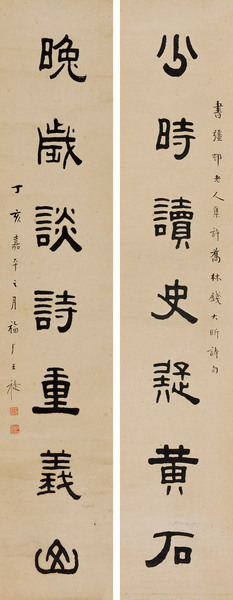 書彊邨老人集許喬林錢大昕詩句
少時讀史疑黃石
晚歲談詩重義山
丁亥嘉平之月福厂王禔